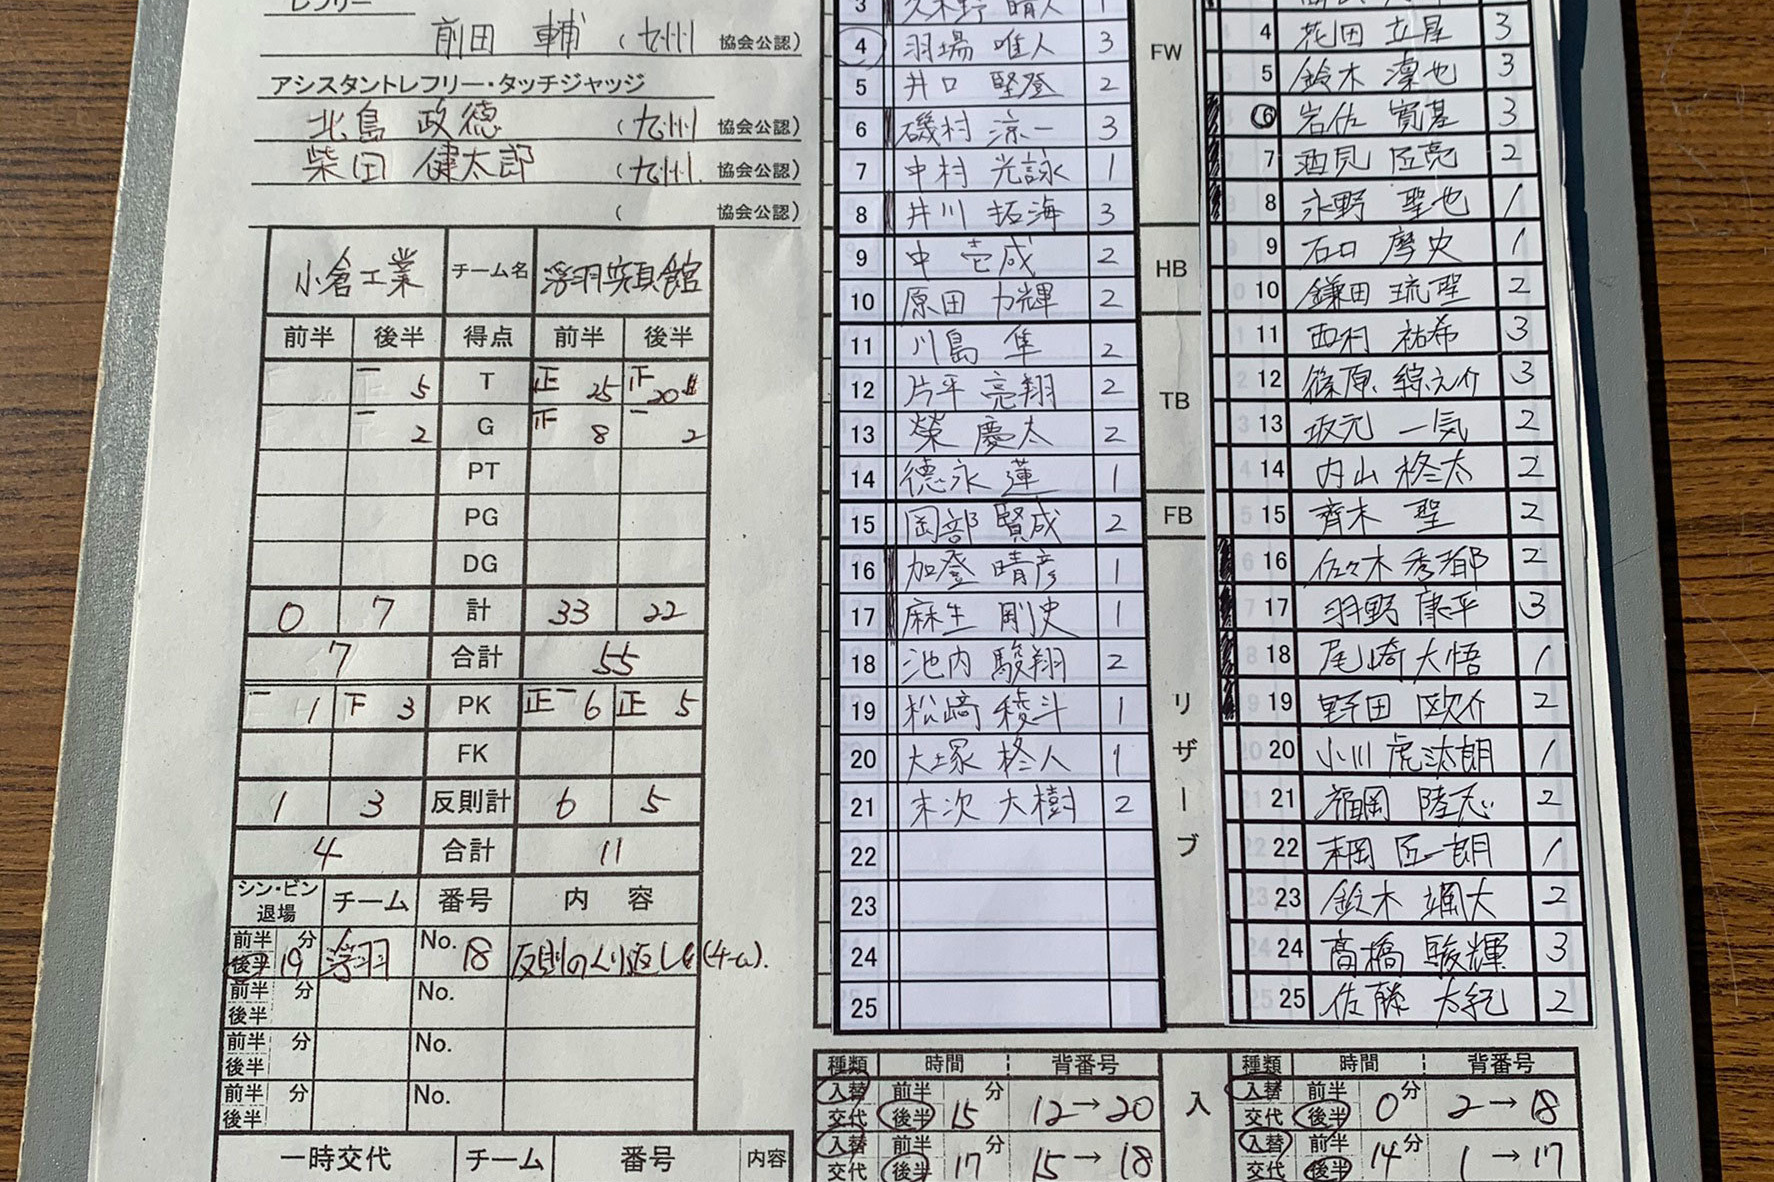 レフリー
前田 輔 (九州 協会公認)
アシスタントレフリー・タッチジャッジ
北島 政徳 (九州 協会公認)
柴田 健太郎 (九州 協会公認)
( 協会公認)
小倉工業 チーム名 浮羽究真館
前半 後半 得点 前半 後半
5 T 正 25 20
2 G 8 2
PT
PG
DG
0 7 計 33 22
7 合計 55
一 1 下 3 PK 正一 6 正 5
FK
1 3 反則計 6 5
4 合計 11
シン・ビン 退場 チーム 番号 内容
前半 後半 19分 浮羽 No. 18 反則のくり返し(チーム).
前半 後半 分 No.
前半 後半 分 No.
前半 後半 分 No.
一時交代 チーム 番号 内容
3 久木野 晴人 1
4 羽場 唯人 3
5 井口 堅登 2
6 磯村 涼一 3
7 中村 光詠 1
8 井川 拓海 3
9 中 壱成 2
10 原田 力輝 2
11 川島 隼 2
12 片平 亮翔 2
13 榮 慶太 2
14 德永 蓮 1
15 岡部 賢成 2
16 加登 晴彦 1
17 麻生 剛史 1
18 池内 駿翔 2
19 松﨑 稜斗 1
20 大塚 柊人 1
21 末次 大樹 2
22
23
24
25
FW
HB
TB
FB
リザーブ
4 花田 立星 3
5 鈴木 凜也 3
6 岩佐 寛基 3
7 酒見 匠亮 2
8 永野 聖也 1
9 石口 摩史 1
10 鎌田 琉聖 2
11 西村 祐希 3
12 篠原 綜元介 3
13 坂元 一気 2
14 内山 柊太 2
15 齊木 聖 2
16 佐々木 秀都 2
17 羽野 康平 3
18 尾崎 大悟 1
19 野田 欧介 2
20 小川 虎汰朗 1
21 福岡 陸志 2
22 末岡 匠一朗 1
23 鈴木 颯大 2
24 髙橋 駿輝 3
25 佐藤 大紀 2
種類 時間 背番号
入替 交代 前半 後半 15分 12→20
入替 交代 前半 後半 17分 15→18
入
種類 時間 背番号
入替 交代 前半 後半 0分 2→18
入替 交代 前半 後半 14分 1→17